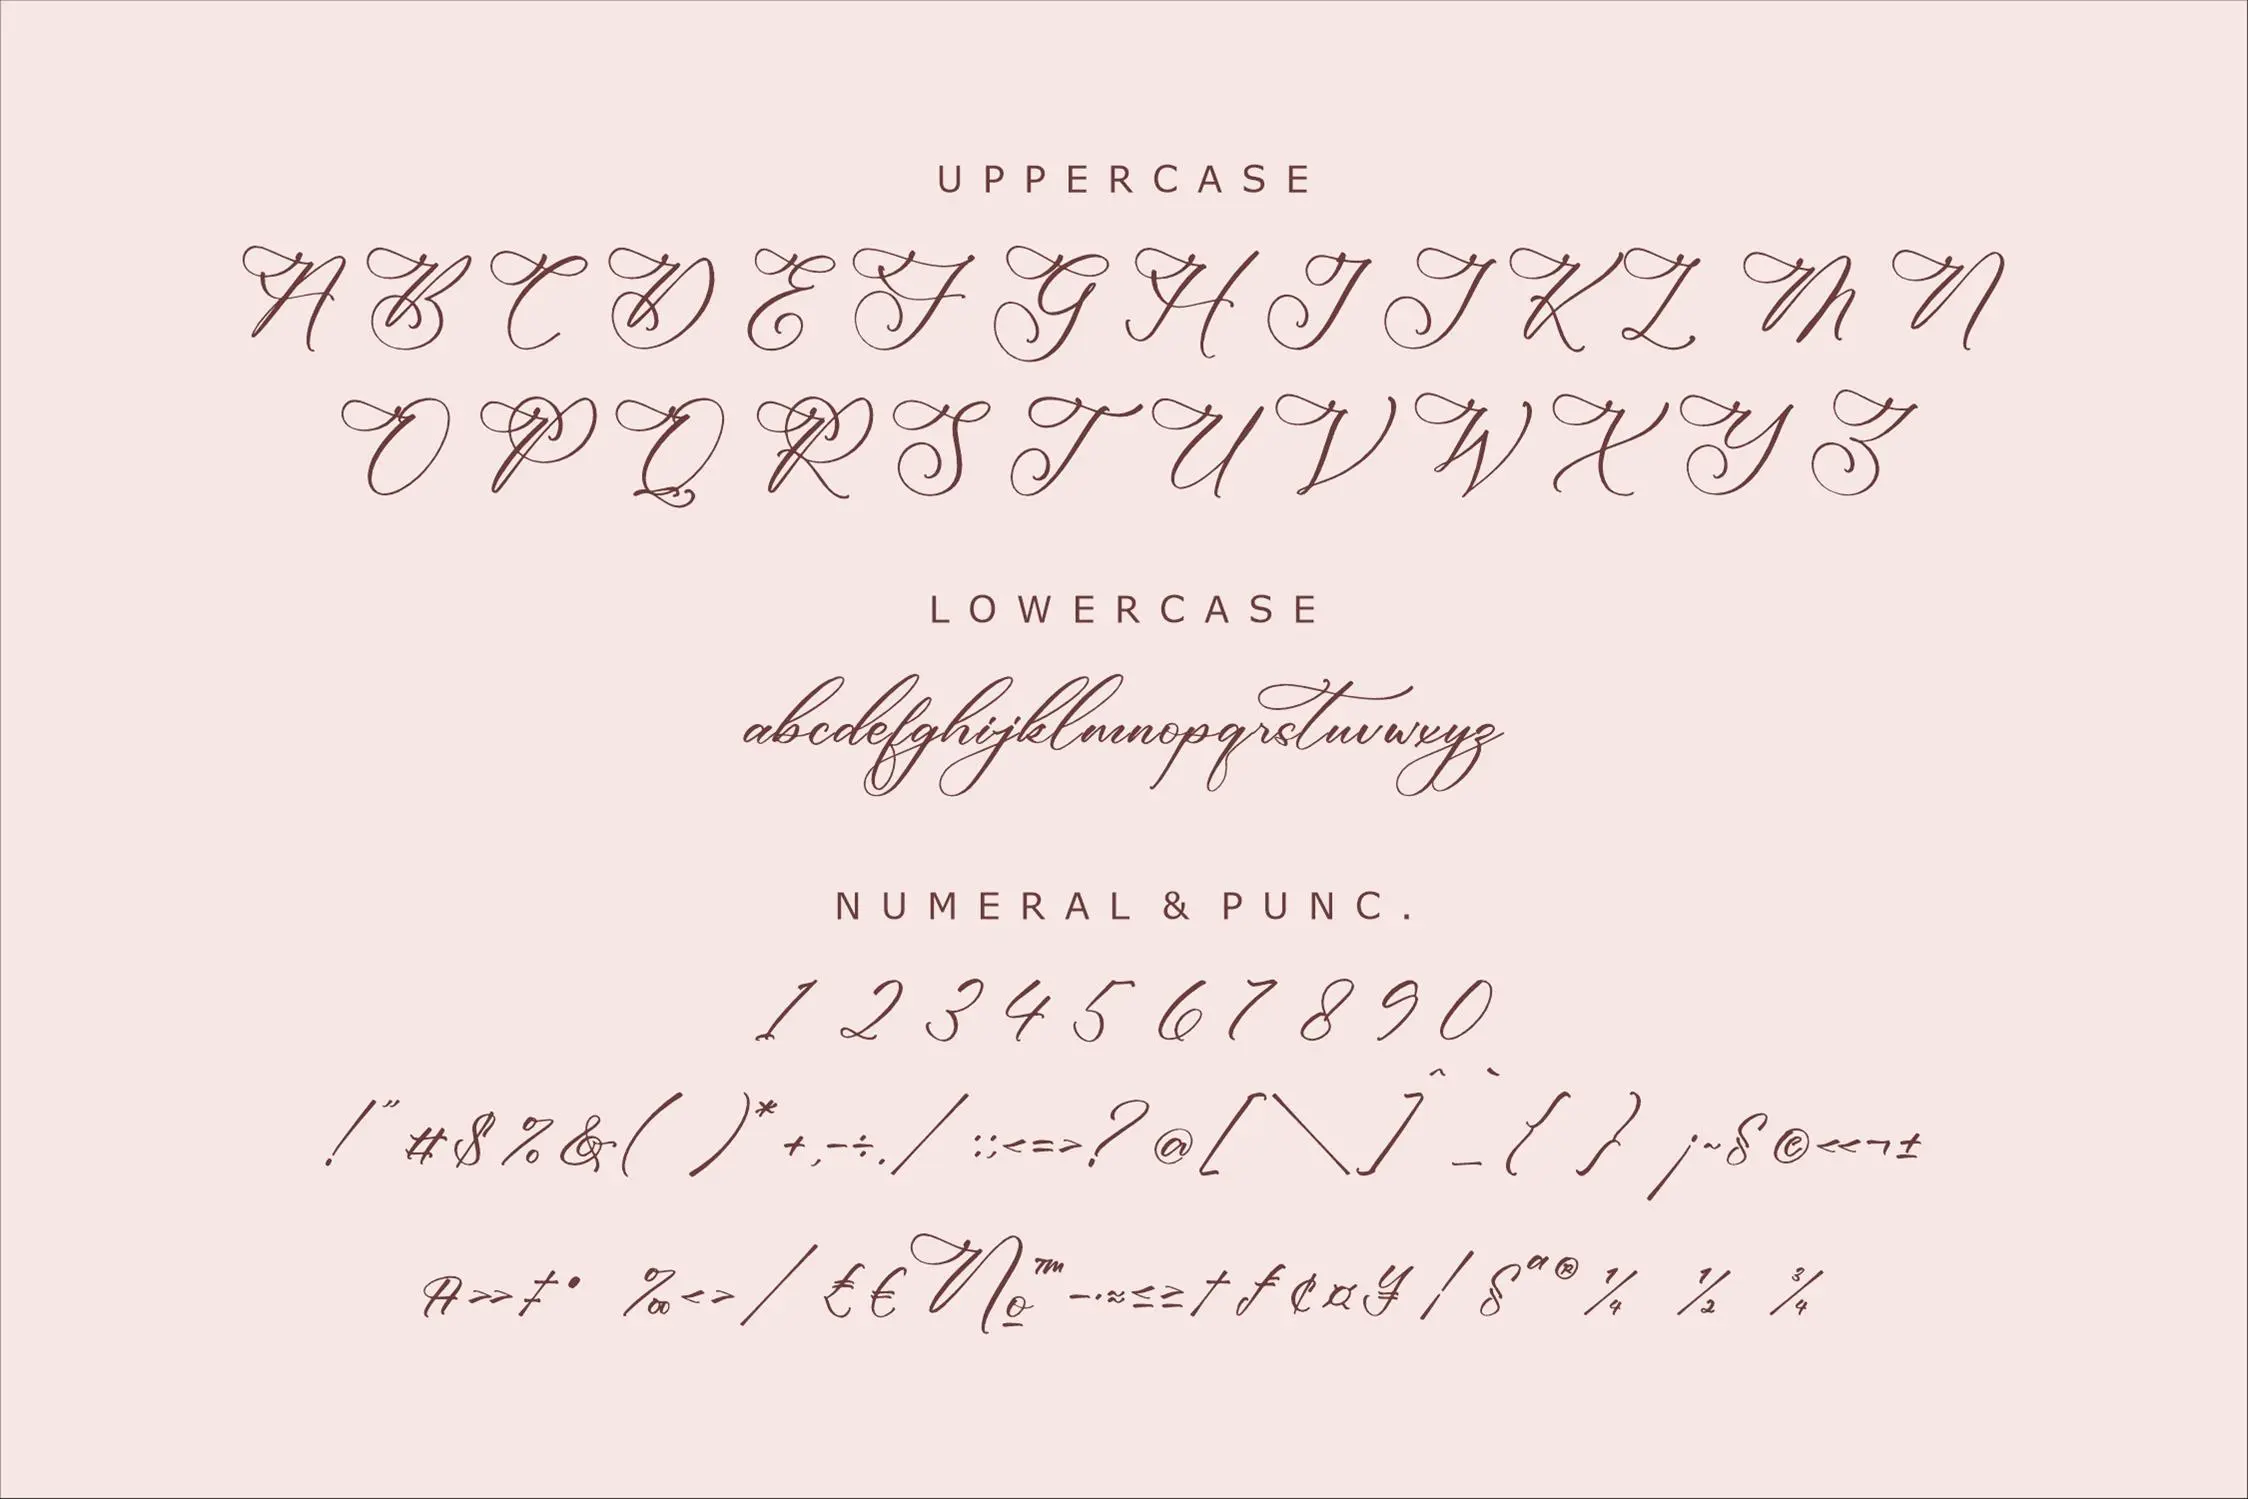 UPPERCASE
A B C D E F G H I J K L M N
O P Q R S T U V W X Y Z
LOWERCASE
abcdefghijklmnopqrstuvwxyz
NUMERAL & PUNC.
1 2 3 4 5 6 7 8 9 0
! " # $ % & ( ) * + , - ÷ . / : ; < = > ? @ [ \ ] ^ _ ` { } ¡ ~ § © « ¬ ±
» ‡ • ‰ ‹ › / £ € N º ™ – · ≈ ≤ ≥ † ƒ ¢ ¤ ¥ § ª ® ¼ ½ ¾